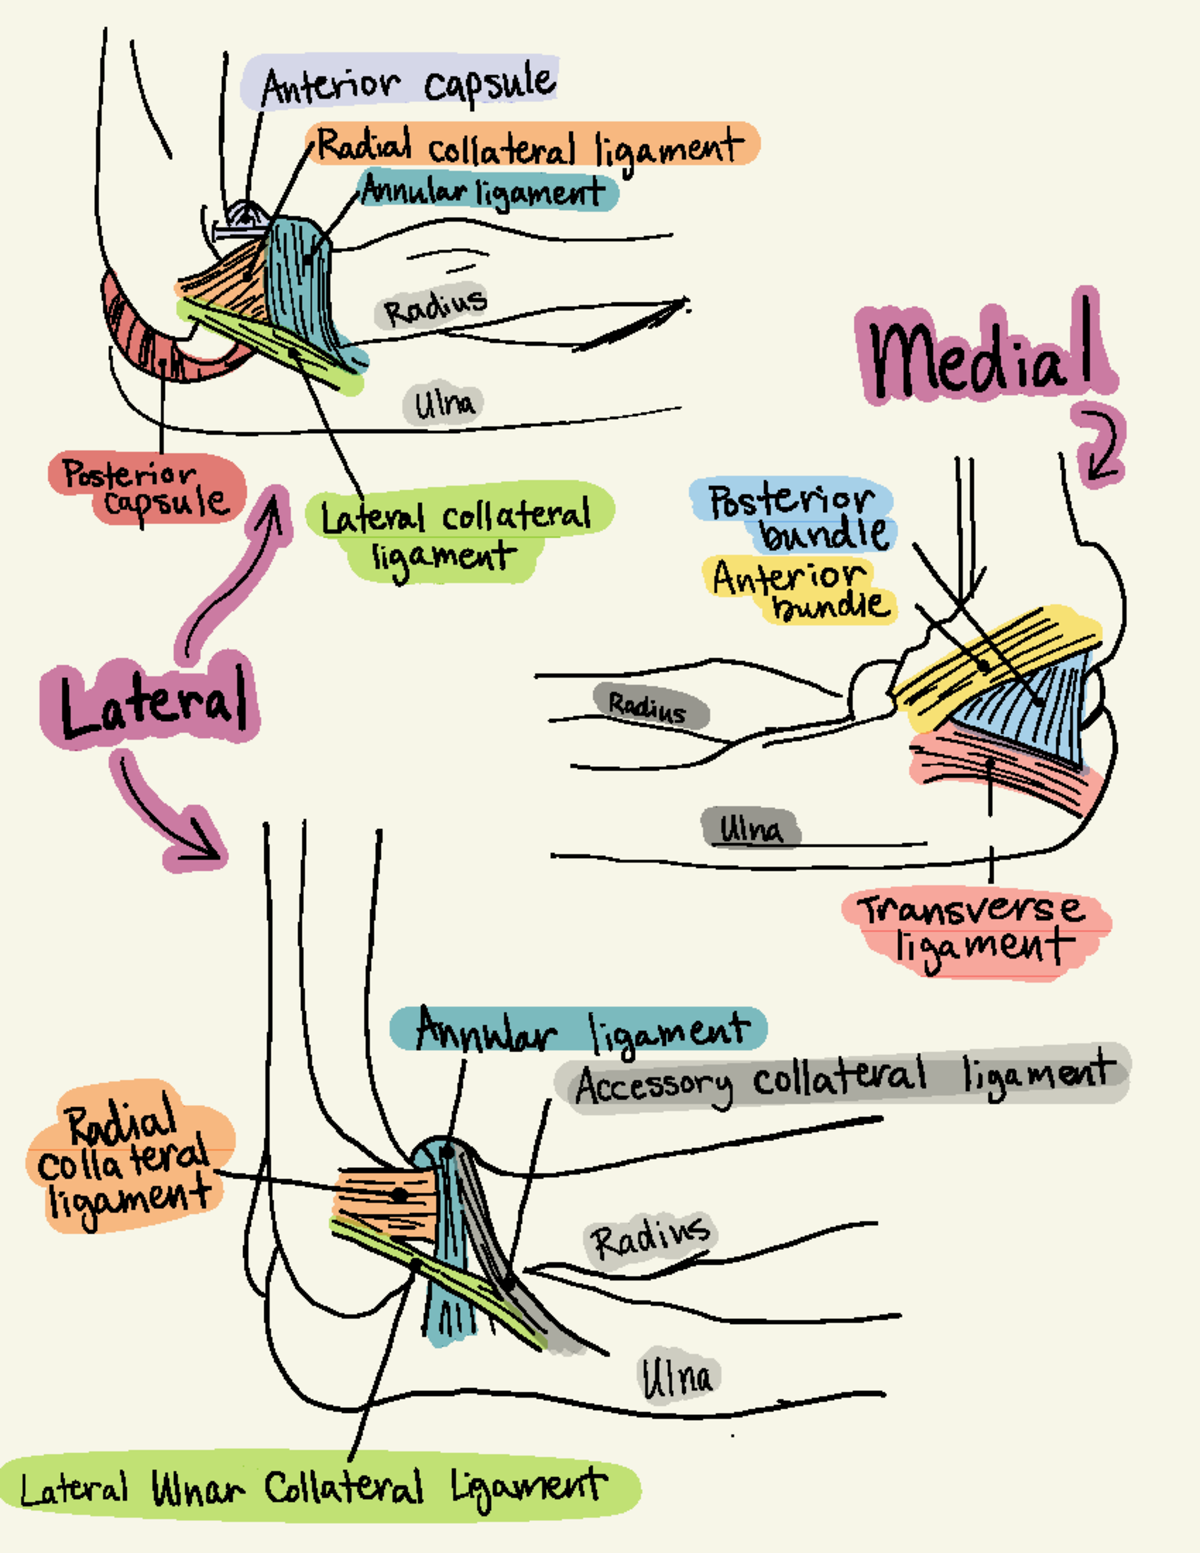 Anterior capsule
Radial collateral ligament
Annular ligament
Radius
Ulna
Posterior
capsule
Lateral collateral
ligament
Medial
Posterior
bundle
Anterior
bundle
Radius
Ulna
Transverse
ligament
Lateral
Annular ligament
Accessory collateral ligament
Radial
collateral
ligament
Radius
Ulna
Lateral Ulnar Collateral Ligament